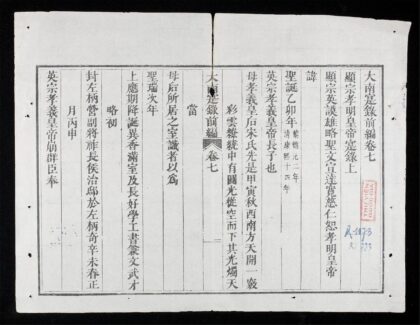 大南寔錄前編卷七
顯宗孝明皇帝寔錄上
顯宗英謨雄略聖文宣達寬慈仁恕孝明皇帝
諱
聖誕乙卯年
黎德元二年
清康熙十四年
英宗孝義皇帝長子也
母孝義皇后宋氏先是甲寅秋西南方天開一竅
彩雲繚繞中有圓光從空而下其光燭天
大南寔錄前編 卷七
當
母后所居之室識者以爲
聖瑞次年
上應期降誕異香滿室及長好學工書兼文武才
略初
封左柄營副將祚長侯治邸於左柄奇辛未春正
月丙申
英宗孝義皇帝崩群臣奉